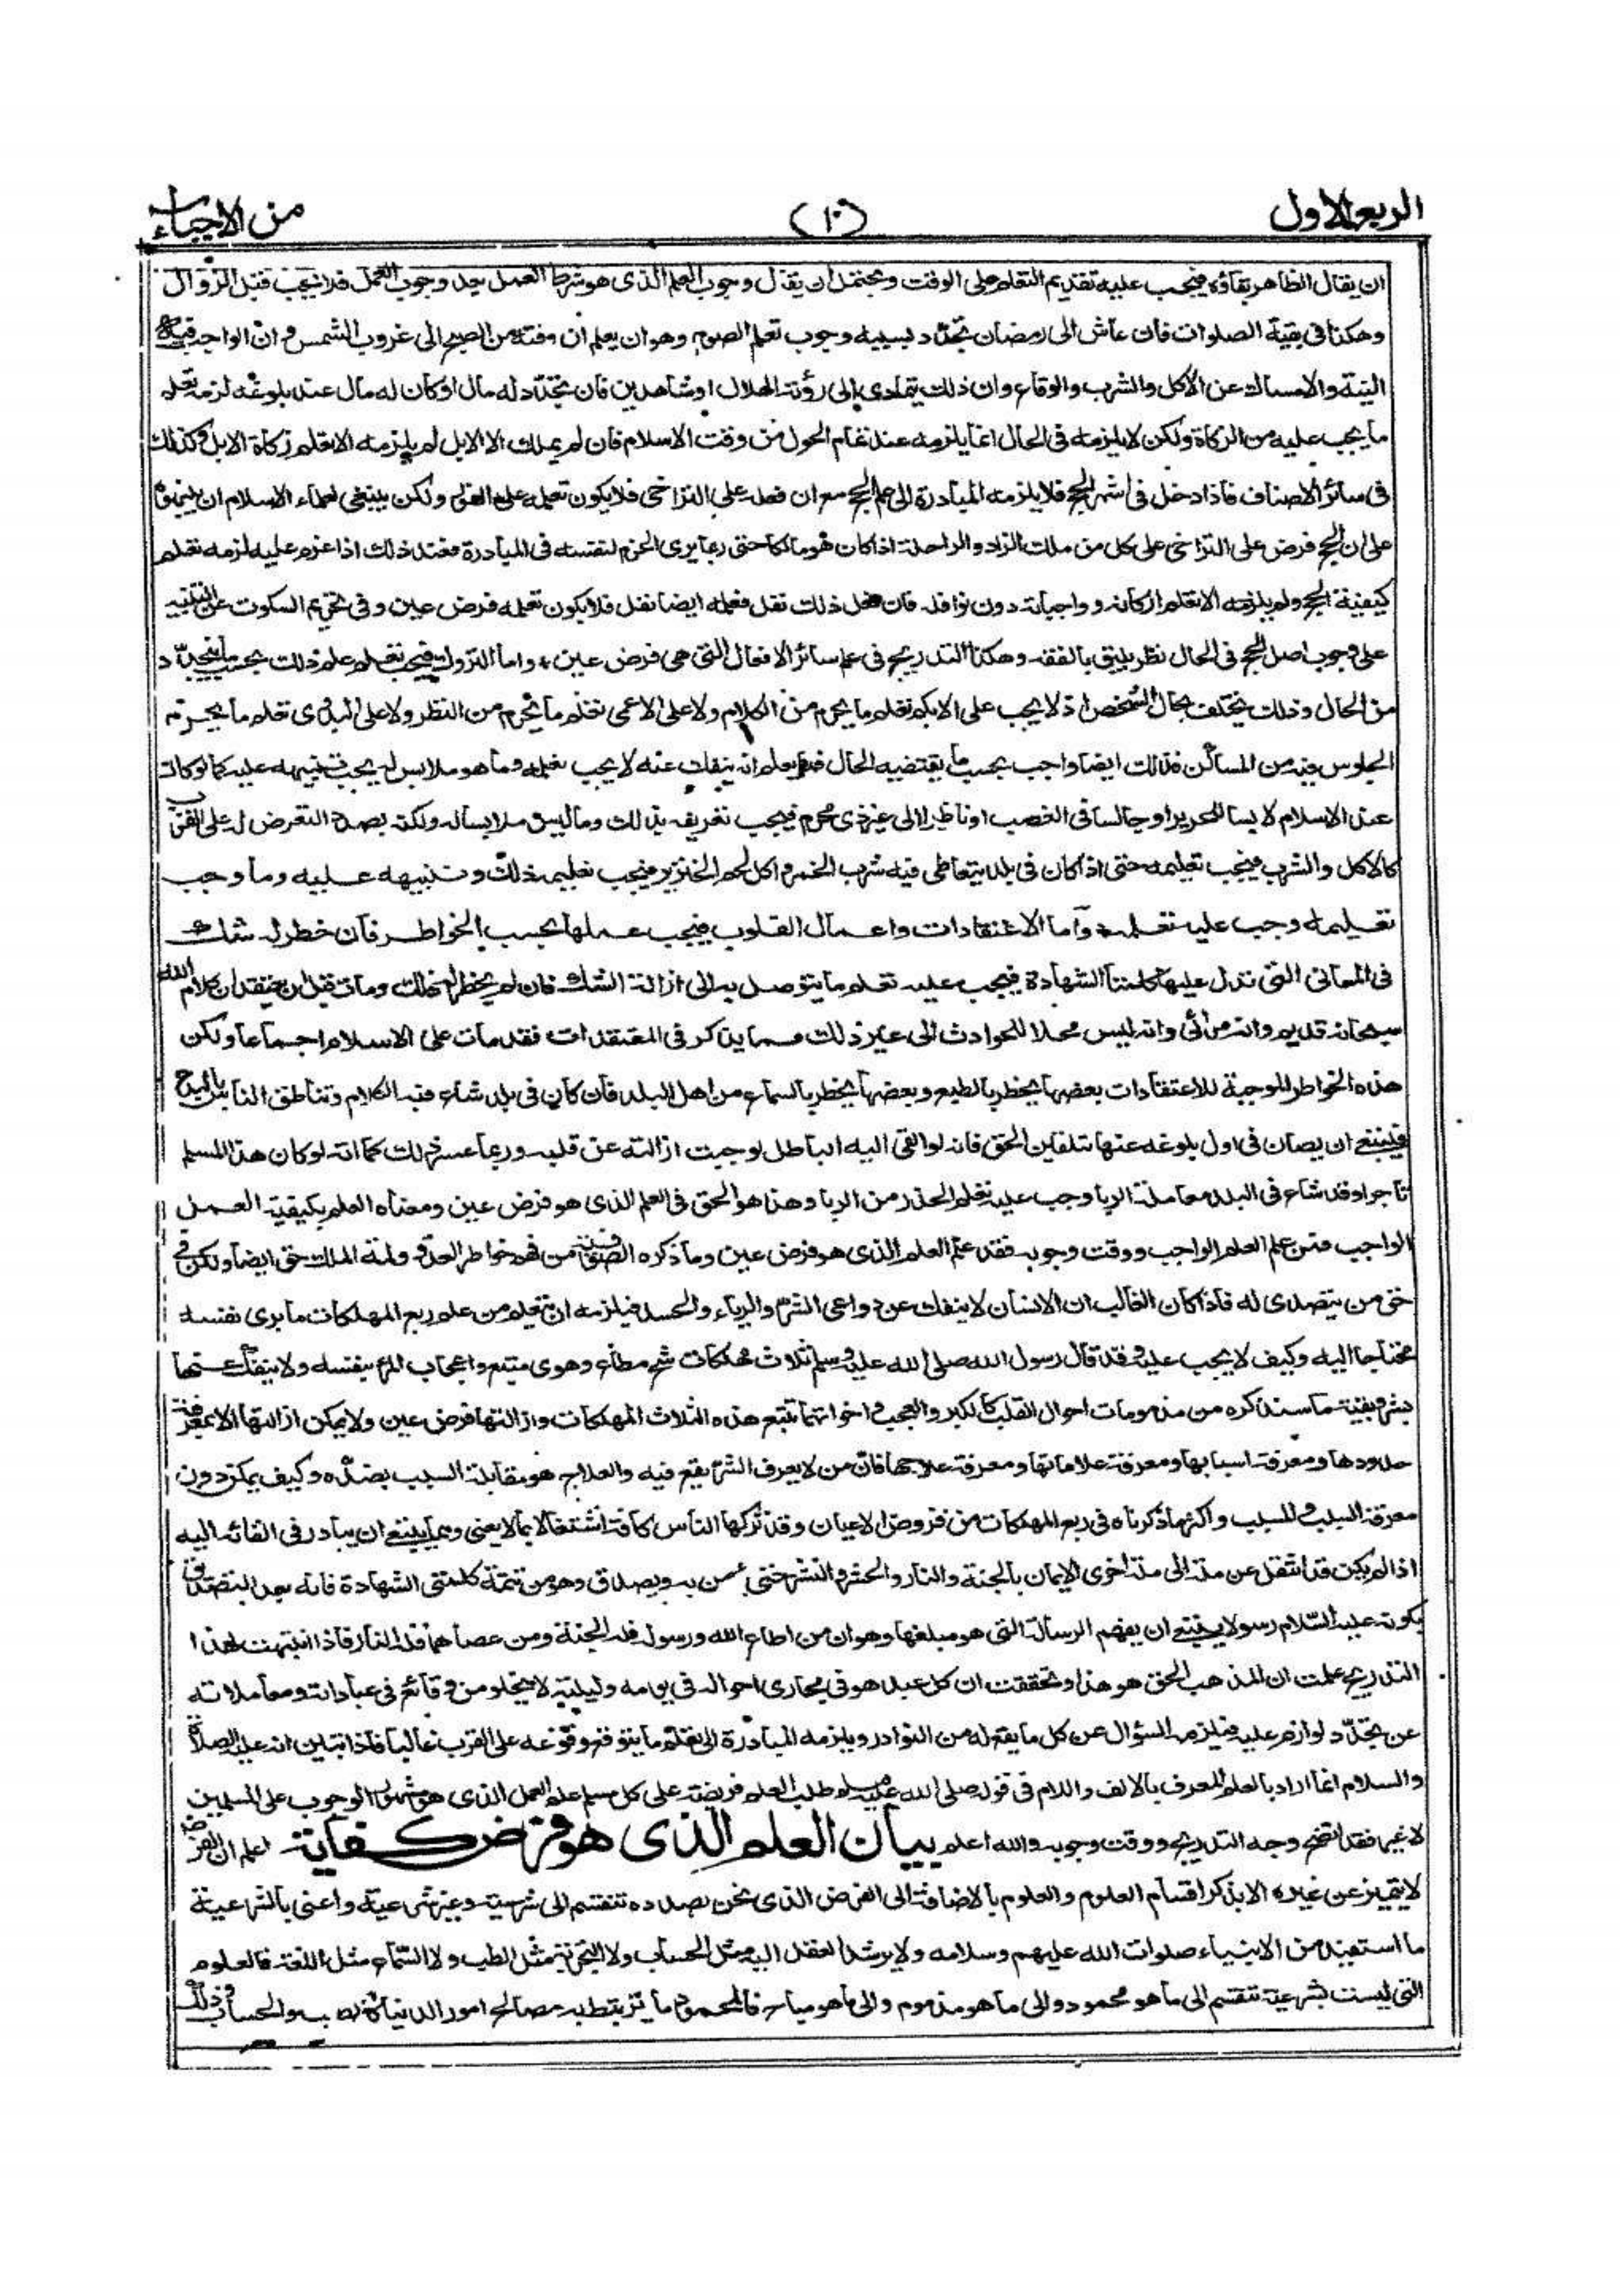 الربع الاول (١٠) من الاحياء
ان يقال الظاهر بقاؤه فيجب عليه تقديم التعلم على الوقت ويحتمل ان يقال وجوب العلم الذى هو شرط العمل بعد وجوب العمل فلا يجب قبل الزوال
وهكذا فى بقية الصلوات فان عاش الى رمضان تجدد بسببه وجوب تعلم الصوم وهو ان يعلم ان وقته من الصبح الى غروب الشمس وان الواجب فيه
النية والامساك عن الاكل والشرب والوقاع وان ذلك يتمادى الى رؤية الهلال او شاهدين فان تجدد له مال او كان له مال عند بلوغه لزمه تعلم
ما يجب عليه من الزكاة ولكن لا يلزمه فى الحال انما يلزمه عند تمام الحول من وقت الاسلام فان لم يملك الا الابل لم يلزمه الا تعلم زكاة الابل وكذلك
فى سائر الاصناف فاذا دخل فى اشهر الحج فلا يلزمه المبادرة الى علم الحج مع ان فعله على التراخى فلا يكون تعلمه على الفور ولكن ينبغى لعلماء الاسلام ان ينبهوه
على ان الحج فرض على التراخى على كل من ملك الزاد والراحلة اذا كان هو مالكا حتى ربما يرى الحزم لنفسه فى المبادرة فعند ذلك اذا عزم عليه لزمه تعلم
كيفية الحج ولم يلزمه الا تعلم اركانه وواجباته دون نوافله فان فعل ذلك نفل فعلمه ايضا نفل فلا يكون تعلمه فرض عين وفى تحريم السكوت عن التنبيه
على وجوب اصل الحج فى الحال نظر يليق بالفقه وهكذا التدريج فى علم سائر الافعال التى هى فرض عين واما التروك فيجب تعلم علم ذلك بحسب ما يتجدد
من الحال وذلك يختلف بحال الشخص اذ لا يجب على الابكم تعلم ما يحرم من الكلام ولا على الاعمى تعلم ما يحرم من النظر ولا على البدوى تعلم ما يحرم
الجلوس فيه من المساكن فذلك ايضا واجب بحسب ما يقتضيه الحال فما يعلم انه ينفك عنه لا يجب تعلمه وما هو ملابس له يجب تنبيهه عليه كما لو كان
عند الاسلام لابسا للحرير او جالسا فى الغصب او ناظرا الى غير ذى محرم فيجب تعريفه بذلك وما ليس ملابسا له ولكنه بصدد التعرض له على القرب
كالاكل والشرب فيجب تعليمه حتى اذا كان فى بلد يتعاطى فيه شرب الخمر واكل لحم الخنزير فيجب تعليمه ذلك وتنبيهه عليه وما وجب
تعليمه وجب عليه تعلمه واما الاعتقادات واعمال القلوب فيجب علمها بحسب الخواطر فان خطر له شك
فى المعانى التى تدل عليها كلمتا الشهادة فيجب عليه تعلم ما يتوصل به الى ازالة الشك فان لم يخطر له ذلك ومات قبل ان يعتقد ان كلام الله
سبحانه قديم وانه مرأى وانه ليس محلا للحوادث الى غير ذلك مما يذكر فى المعتقدات فقد مات على الاسلام اجماعا ولكن
هذه الخواطر الموجبة للاعتقادات بعضها يخطر بالطبع وبعضها يخطر بالسماع من اهل البلد فان كان فى بلد شاع فيه الكلام وتناطق الناس بالبدع
فينبغى ان يصان فى اول بلوغه عنها بتلقين الحق فانه لو القى اليه الباطل لوجبت ازالته عن قلبه وربما عسر ذلك كما انه لو كان هذا المسلم
تاجرا وقد شاع فى البلد معاملة الربا وجب عليه تعلم الحذر من الربا وهذا هو الحق فى العلم الذى هو فرض عين ومعناه العلم بكيفية العمل
الواجب فمن علم العلم الواجب ووقت وجوبه فقد علم العلم الذى هو فرض عين وما ذكره الصوفية من فهم خواطر العدو ولمة الملك حق ايضا ولكن فى
حق من يتصدى له فاذا كان الغالب ان الانسان لا ينفك عن دواعى الشر والرياء والحسد فيلزمه ان يتعلم من علم ربع المهلكات ما يرى نفسه
محتاجا اليه وكيف لا يجب عليه وقد قال رسول الله صلى الله عليه وسلم ثلاث مهلكات شح مطاع وهوى متبع واعجاب المرء بنفسه ولا ينفك عنها
بشر وبقية ما سنذكره من مذمومات احوال القلب كالكبر والعجب واخواتهما تتبع هذه الثلاث المهلكات وازالتها فرض عين ولا يمكن ازالتها الا بمعرفة
حدودها ومعرفة اسبابها ومعرفة علاماتها ومعرفة علاجها فان من لا يعرف الشر يقع فيه والعلاج هو مقابلة السبب بضده وكيف يمكن دون
معرفة السبب والمسبب واكثر ما ذكرناه فى ربع المهلكات من فروض الاعيان وقد تركها الناس كافة اشتغالا بما لا يعنى ومما ينبغى ان يبادر فى القائه اليه
اذا لم يكن قد انتقل عن ملة الى ملة اخرى الايمان بالجنة والنار والحشر والنشر حتى يؤمن به ويصدق وهو من تتمة كلمتى الشهادة فانه بعد التصديق
بكونه عليه السلام رسولا ينبغى ان يفهم الرسالة التى هو مبلغها وهو ان من اطاع الله ورسوله فله الجنة ومن عصاهما فله النار فاذا انتبهت لهذا
التدريج علمت ان المذهب الحق هو هذا وتحققت ان كل عبد هو فى مجارى احواله فى يومه وليلته لا يخلو من وقائع فى عباداته ومعاملاته
عن تجدد لوازم عليه فيلزمه السؤال عن كل ما يقع له من النوادر ويلزمه المبادرة الى تعلم ما يتوقع وقوعه على القرب غالبا فاذا تبين انه عليه الصلاة
والسلام انما اراد بالعلم المعرف بالالف واللام فى قوله صلى الله عليه وسلم طلب العلم فريضة على كل مسلم علم العمل الذى هو مشهور الوجوب على المسلمين
لا غير فقد اتضح وجه التدريج ووقت وجوبه والله اعلم بيان العلم الذى هو فرض كفاية اعلم ان الفرض
لا يتميز عن غيره الا بذكر اقسام العلوم والعلوم بالاضافة الى الفرض الذى نحن بصدده تنقسم الى شرعية وغير شرعية واعنى بالشرعية
ما استفيد من الانبياء صلوات الله عليهم وسلامه ولا يرشد العقل اليه مثل الحساب ولا التجربة مثل الطب ولا السماع مثل اللغة فالعلوم
التى ليست بشرعية تنقسم الى ما هو محمود والى ما هو مذموم والى ما هو مباح فالمحمود ما يرتبط به مصالح امور الدنيا كالطب والحساب وذلك